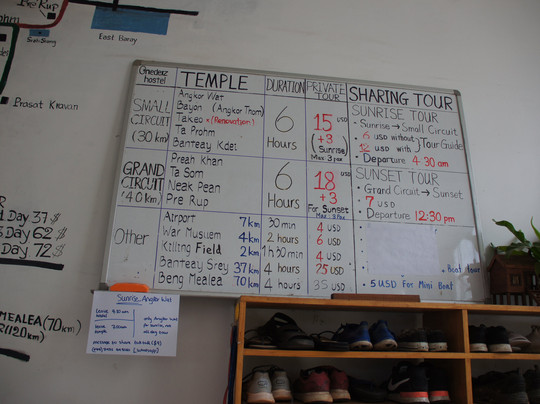 East Baray
Prasat Kravan
Day 37 $
Day 62 $
Day 72 $
MEALEA (70km)
(120km)
Gnederz hostel
TEMPLE
DURATION
PRIVATE TOUR
SHARING TOUR
SMALL CIRCUIT (30 km)
Angkor Wat
Bayon (Angkor Thom)
Takeo *(Renovation)
Ta Prohm
Banteay Kdei
6 Hours
15 USD
(+3 Sunrise)
Max 3 pax
SUNRISE TOUR
• Sunrise → Small Circuit
• 6 USD without
12 USD with ) Tour Guide
• Departure 4:30 am
GRAND CIRCUIT (40 km)
Preah Khan
Ta Som
Neak Pean
Pre Rup
6 Hours
18 USD
+3
For Sunset
SUNSET TOUR
• Grand Circuit → Sunset
7 USD
• Departure 12:30 pm
Other
Airport 7km 30 min 4 USD
War Musuem 4km 2 hours 6 USD
Killing Field 2km 1h30 min 4 USD
Banteay Srey 37km 4 hours 25 USD
Beng Mealea 70km 4 hours 35 USD
• 5 USD For Mini Boat
Sunrise Angkor Wat